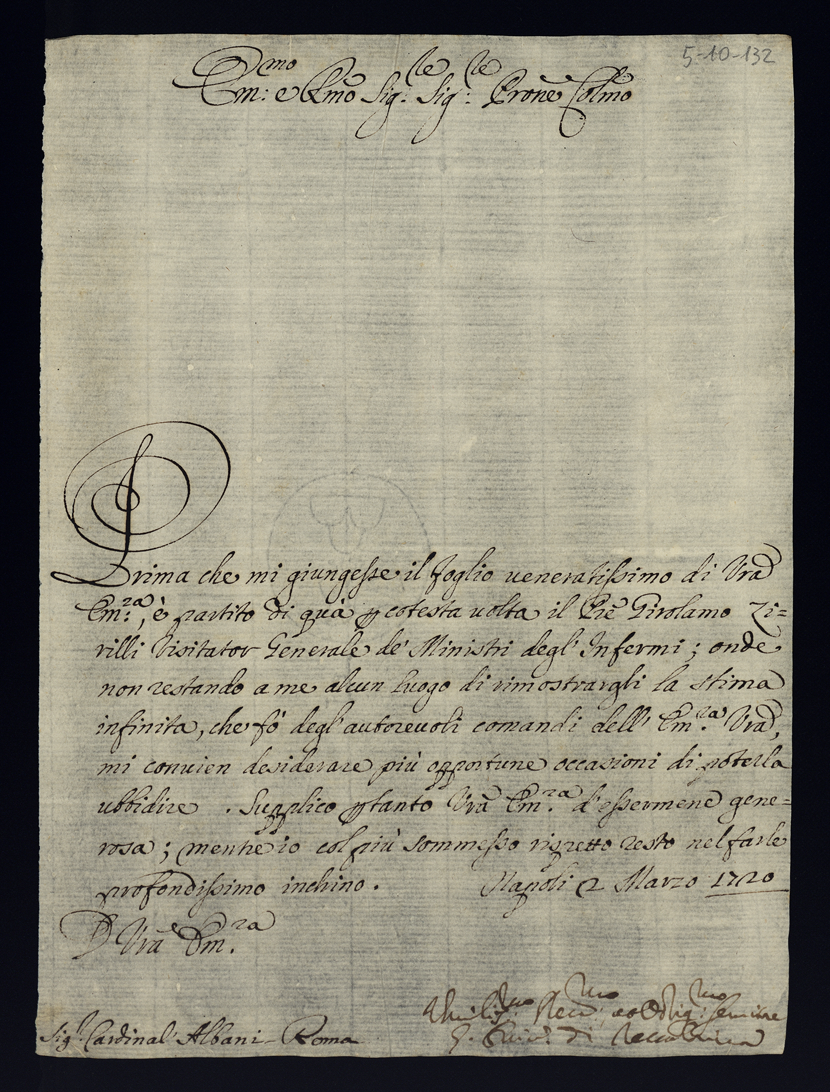 5-10-132
Em:mo e Rmo Sig:re Sig:re Prone Colmo
Prima che mi giungesse il foglio veneratissimo di Vra
Em:za, è partito di quà p cotesta volta il Pre Girolamo Zi=
rilli Visitator Generale de' Ministri degl' Infermi; onde
non restando a me alcun luogo di rimostrargli la stima
infinita, che fò degl' autorevoli comandi dell' Em:za Vra,
mi convien desiderare più opportune occasioni di poterla
ubbidire. Supplico ptanto Vra Em:za d'essermene gene=
rosa; mentre io col più sommesso rispetto resto nel farle
profondissimo inchino. Napoli 2 Marzo 1720
D Vra Em:za
Sig.r Cardinal Albani - Roma